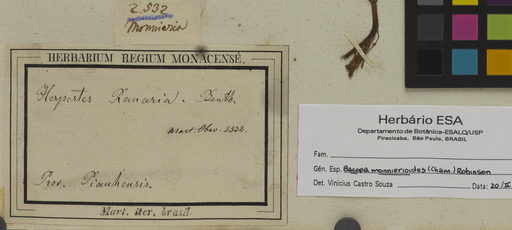 2.532
Monnieria
HERBARIUM REGIUM MONACENSE.
Herpestes Ranaria. Benth.
Mart. Obs. 2532.
Prov. Piauhensis.
Mart. iter. brasil.
Herbário ESA
Departamento de Botânica-ESALQ/USP
Piracicaba, São Paulo, BRASIL
Fam.
Gên. Esp. Bacopa monnierioides (Cham.) Robinson
Det. Vinicius Castro Souza Data: 20/II